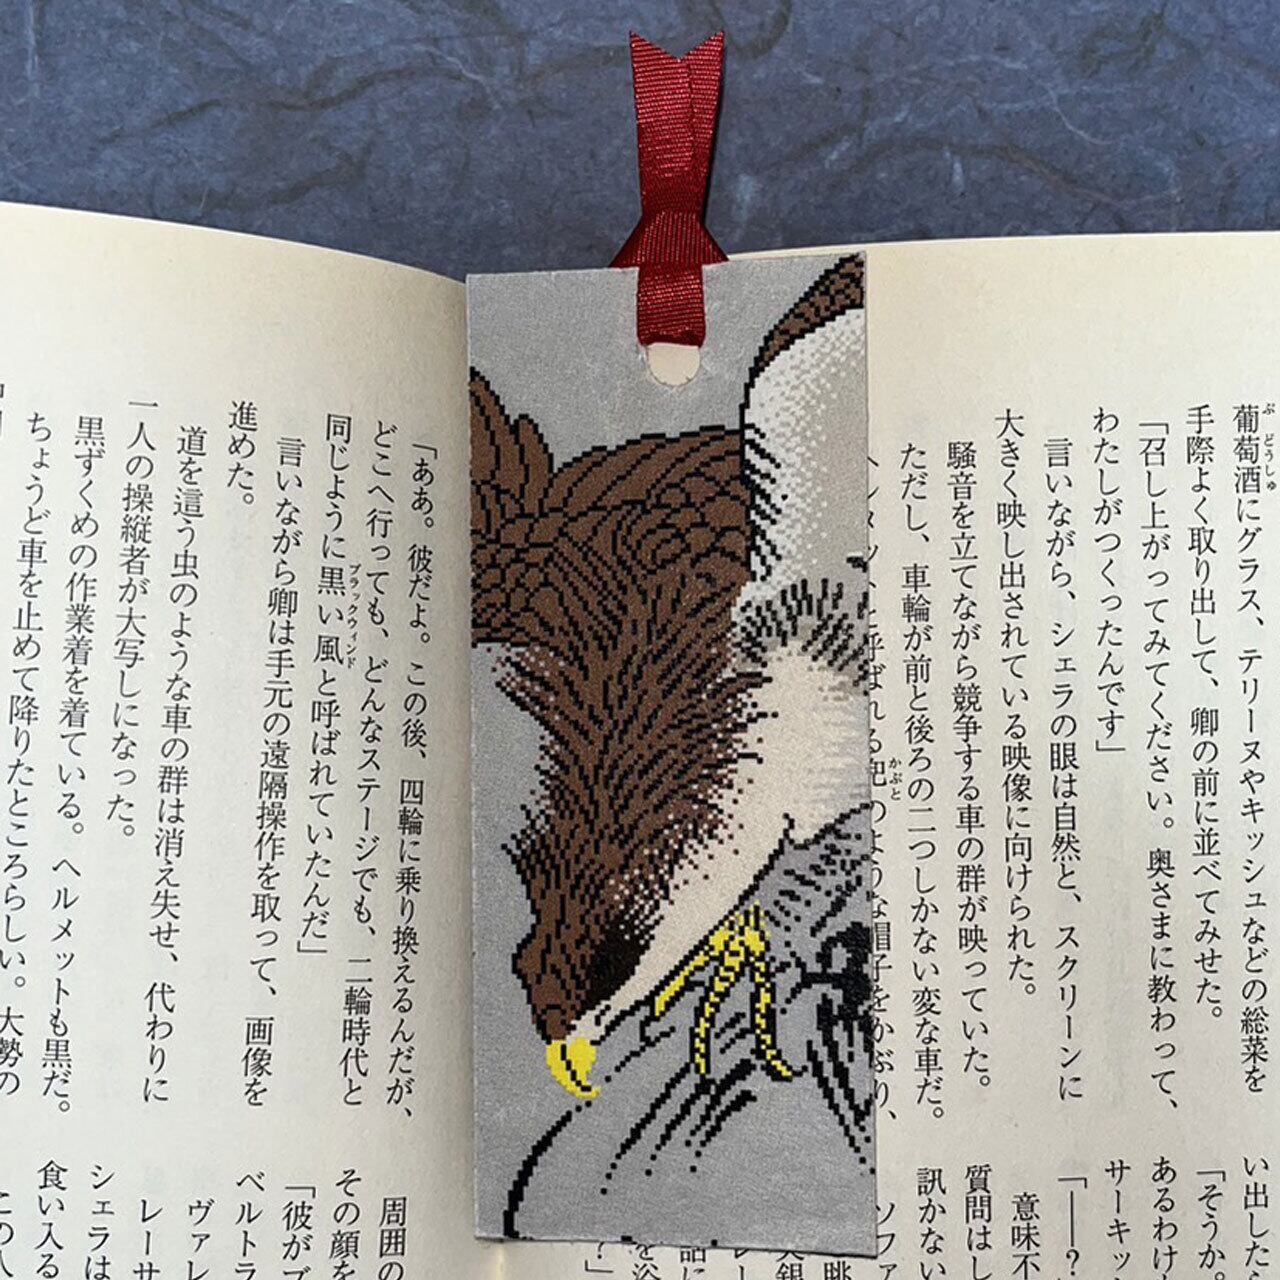 葡萄酒にグラス、テリーヌやキッシュなどの総菜を
手際よく取り出して、卿の前に並べてみせた。
「召し上がってみてください。奥さまに教わって、
わたしがつくったんです」
言いながら、シェラの眼は自然と、スクリーンに
大きく映し出されている映像に向けられた。
騒音を立てながら競争する車の群が映っていた。
ただし、車輪が前と後ろの二つしかない変な車だ。
い出した
「そうか。
あるわけ
サーキッ
「――？
質問はし
意味不
訊かない
「ああ。彼だよ。この後、四輪に乗り換えるんだが、
どこへ行っても、どんなステージでも、二輪時代と
同じように黒い風と呼ばれていたんだ」
言いながら卿は手元の遠隔操作を取って、画像を
進めた。
道を這う虫のような車の群は消え失せ、代わりに
一人の操縦者が大写しになった。
黒ずくめの作業着を着ている。ヘルメットも黒だ。
ちょうど車を止めて降りたところらしい。大勢の
周囲の
その顔を
「彼がブ
ベルトラ
ヴァレ
レーサ
シェラは
食い入る